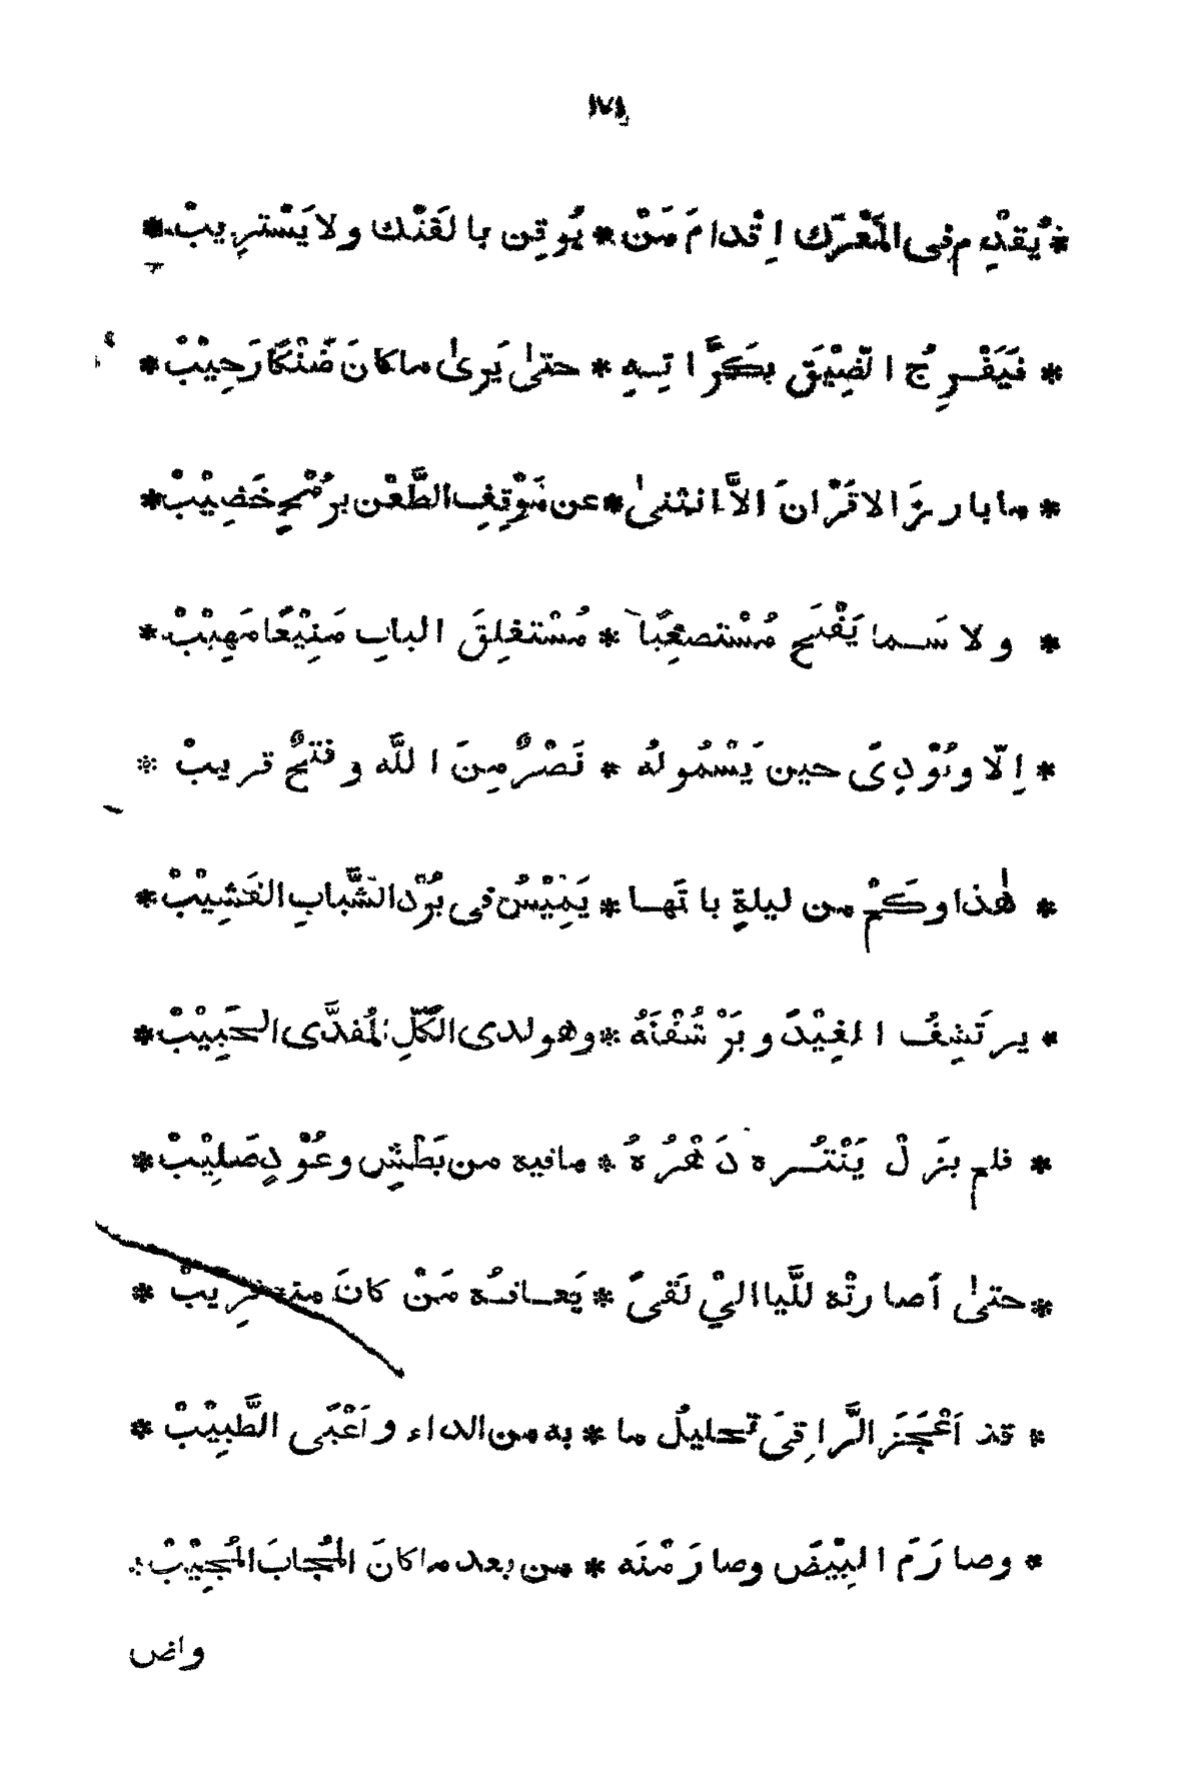 ١٧١
* يُقْدِم فى المَعْرَك اِقْدامَ مَنْ * يُوقِن بالفَتْك ولا يَسْتَرِيبْ *
* فَيَفْرِجُ الضِّيْقَ بكَرَّاتِهِ * حتىٰ يَرىٰ ماكانَ ضَنْكًا رَحِيْبْ *
* مابارزَ الاقْرَانَ الاَّ انثنىٰ * عن مَوْقِفِ الطَّعْن برُمْحٍ خَضِيْبْ *
* ولا سَما يَفْتَح مُسْتصعِبًا * مُسْتغلِقَ البابِ مَنِيْعًا مَهِيْبْ *
* اِلّا ونُوْدِىَ حين يَسْمُو لهُ * نَصْرٌ مِنَ اللَّه وفتحٌ قريبْ *
* هٰذا وكَمْ من ليلةٍ باتَها * يَمِيْسُ فى بُرْد الشَّبابِ القَشِيْبْ *
* يرتَشِفُ الغِيْدَ وبَرْشُفْنَهُ * وهو لدى الكُلِّ المُفدَّى الحَبِيْبْ *
* فلم يزَلْ يَبْتُزه دَهْرُهُ * مافيه من بَطْشٍ وعُوْدٍ صَلِيْبْ *
* حتىٰ اَصارتْه للَّيااليْ لَقىً * يَعافُه مَنْ كانَ منه قرِيبْ *
* قد اَعْجَزَ الرَّاقِىَ تحليلُ ما * به من الداء واَعْيَى الطَّبِيْبْ *
* وصارَمَ البِيْضَ وصارَمْنَه * من بعد ماكانَ المُجابَ المُجِيْبْ *
واض